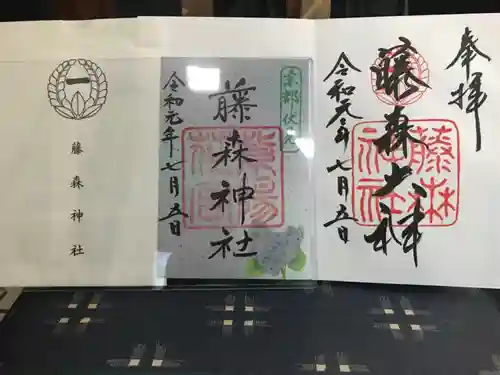 奉拝
藤森神社
藤森神社
令和元年七月五日
京都伏見
藤森神社
令和元年七月五日
藤森神社